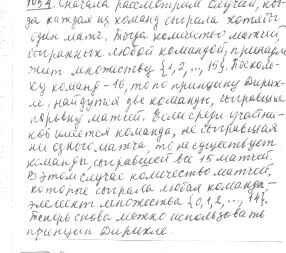 Сначала рассмотрим случай, ког-
да каждая из команд сыграла хотя бы
один матч. Тогда количество матчей,
сыгранных любой командой, принадле
жит множеству {1, 2, ..., 15}. Посколь-
ку команд - 16, то по принципу Дирих-
ле, найдутся две команды, сыгравшие
поровну матчей. Если среди участни-
ков имеется команда, не сыгравшая
ни одного матча, то не существует
команды, сыгравшей все 15 матчей.
В этом случае количество матчей,
которые сыграла любая команда-
элемент множества {0, 1, 2, ..., 14}.
Теперь снова можно использовать
принцип Дирихле.